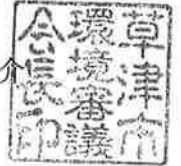 草津市
環境審議
会長印